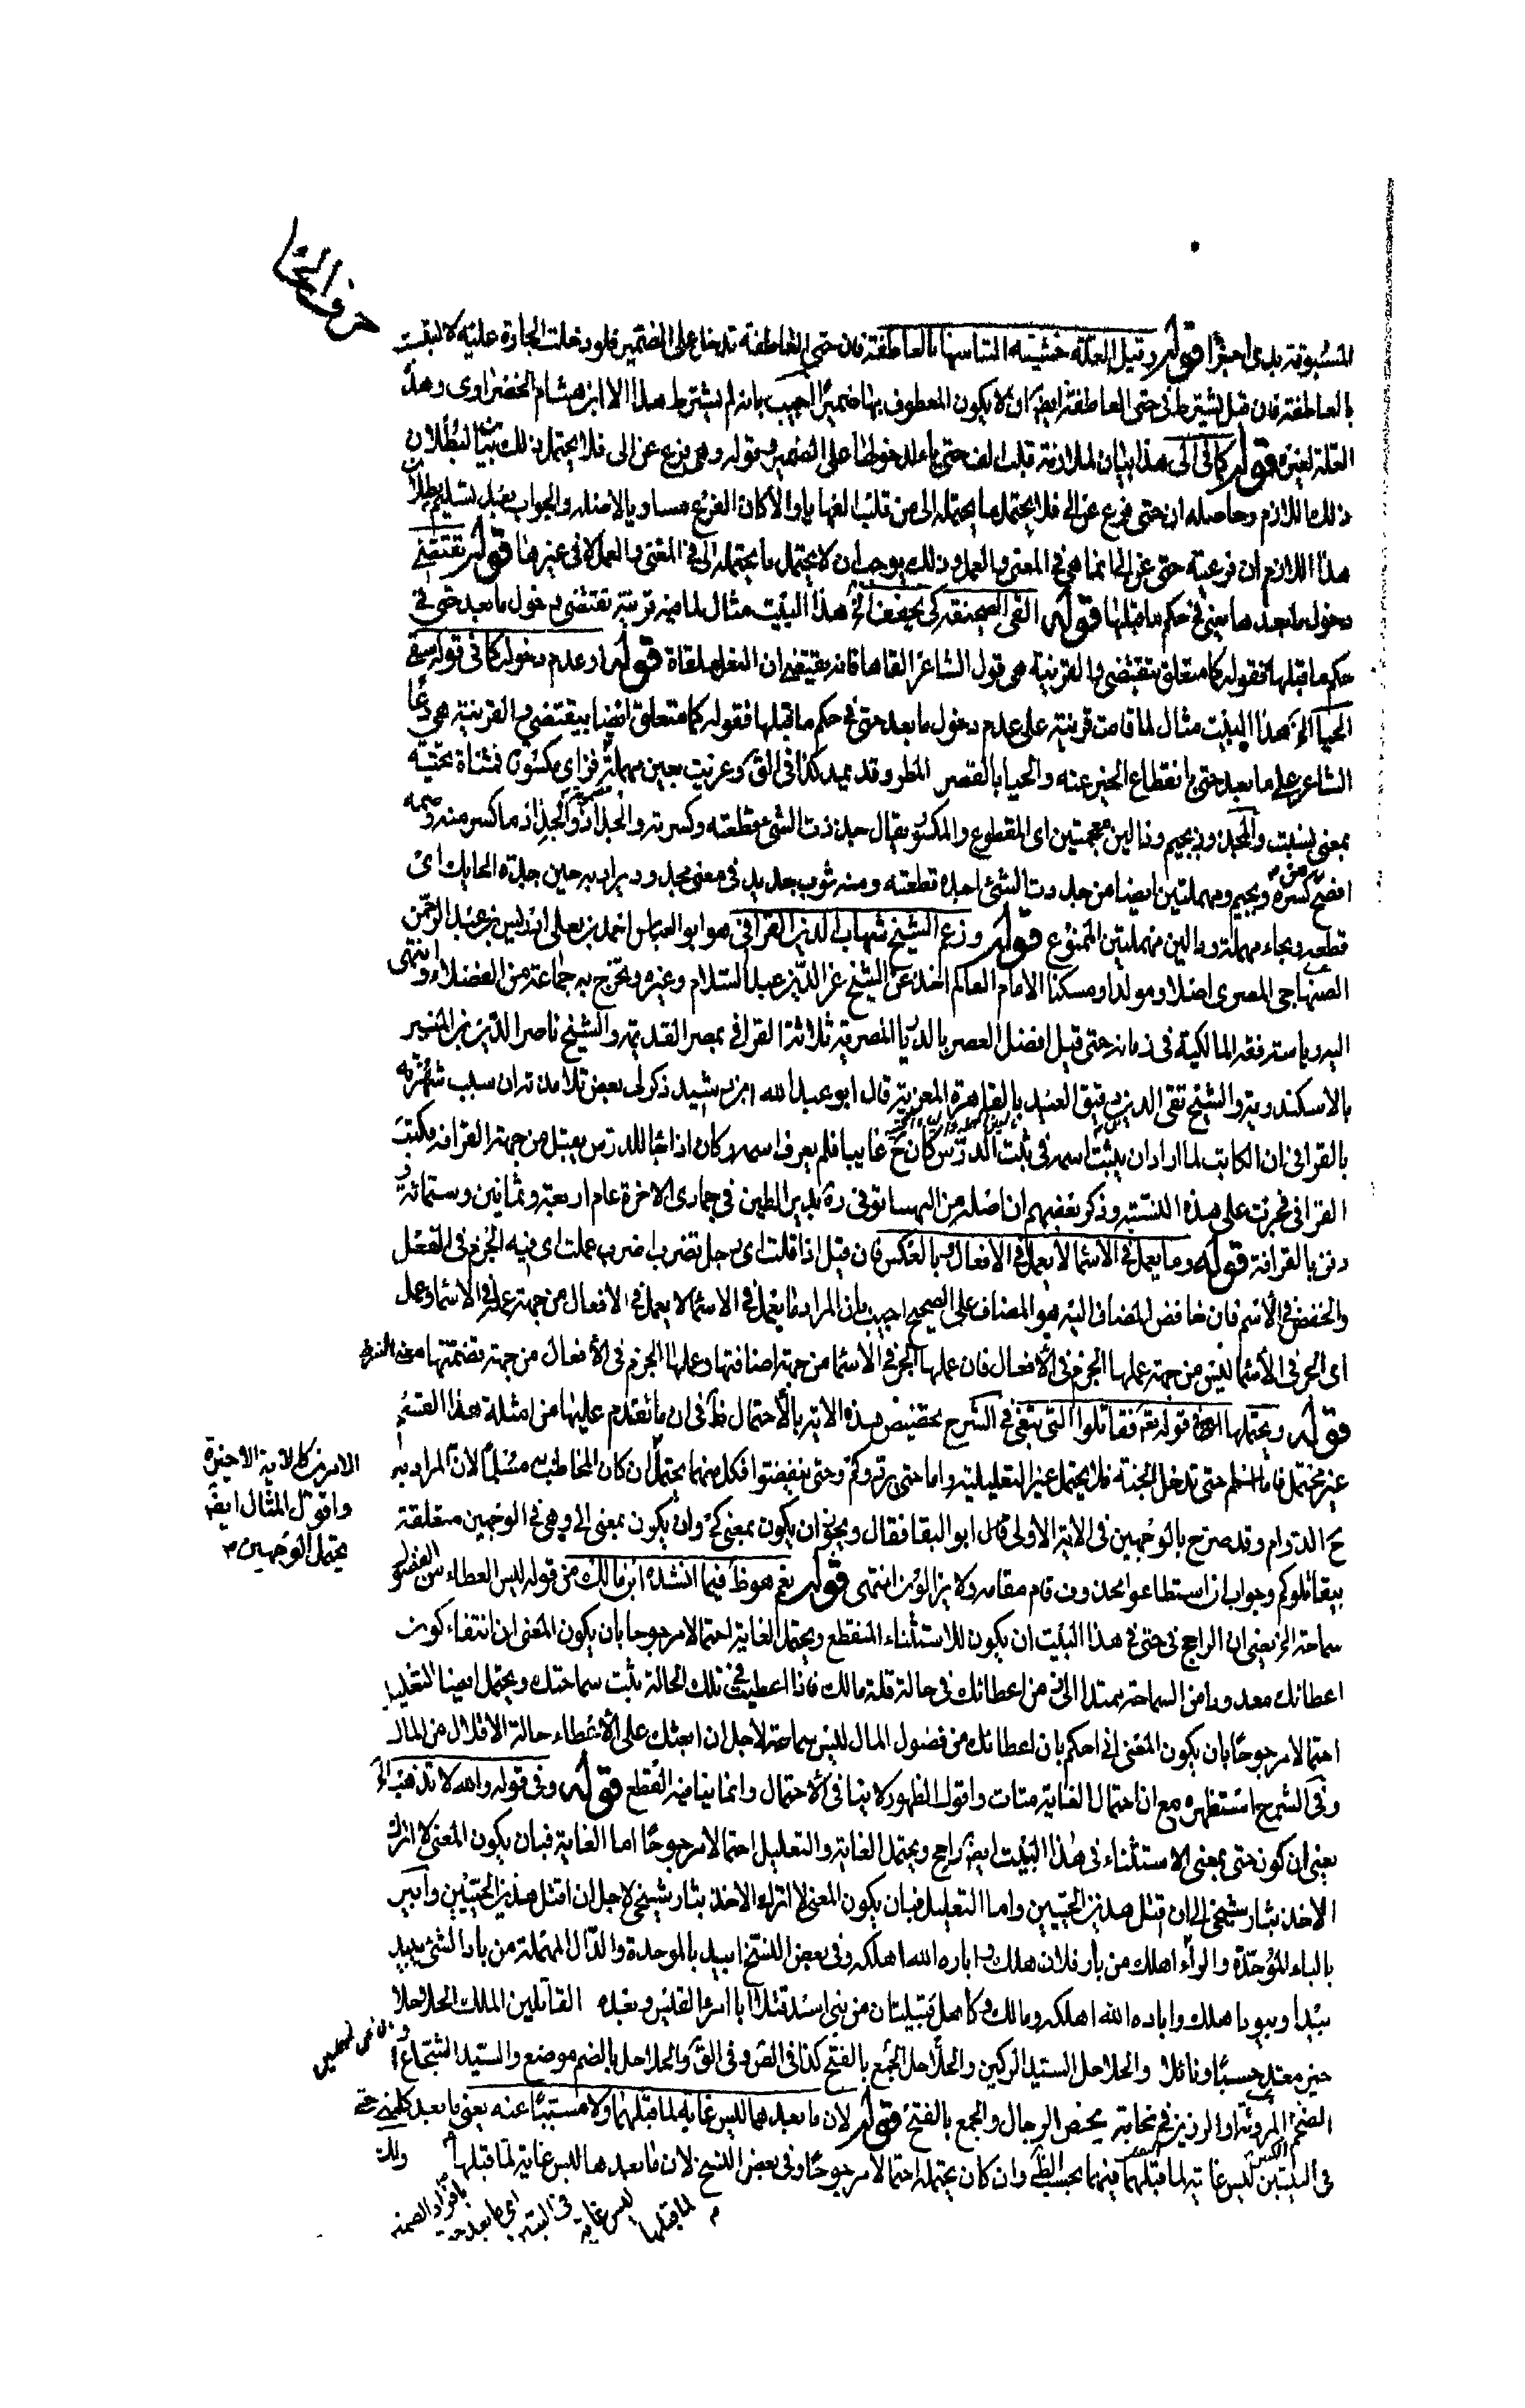 حرف الحا
المسبوقة بذي اجزا قوله وقيل العلة خشية التباسها بالعاطفة فان حتى العاطفة تدخل على الضمير فلو دخلت الجارة عليه لالتبست
بالعاطفة فان قيل يشترط في حتى العاطفة ايضا ان لا يكون المعطوف بها ضميرا اجيب بانه لم يشترط هذا الا ابن هشام الخضراوي وهذه
العلة لغيره قوله كما في الى هذا بيان لملازمة قلب الف حتى ياء لدخولها على الضمير وقوله وهي فرع عن الى فلا يحتمل ذلك بيان لبطلان
ذلك اللازم وحاصله ان حتى فرع عن الى فلا يحتمل ما يحتمله الى من قلب الفها يا والا كان الفرع مساويا لاصله والجواب بعد تسليم بطلان
هذا اللازم ان فرعية حتى عن الى انما هي في المعنى والعمل وذلك يوجب ان لا يحتمل ما يحتمله الى في المعنى والعمل لا في غيرها قوله تقتضي
دخول ما بعدها يعني في حكم ما قبلها قوله القى الصحيفة كي يخفف الخ هذا البيت مثال لما فيه قرينة تقتضي دخول ما بعد حتى في
حكم ما قبلها فقوله كما متعلق بتقتضي والقرينة هي قول الشاعر القاها فانه يقتضي ان النعل ملقاة قوله او عدم دخوله كما في قوله سقى
الحيا الخ هذا البيت مثال لما قامت قرينة على عدم دخول ما بعد حتى في حكم ما قبلها فقوله كما متعلق ايضا بيقتضي والقرينة هي دعا
الشاعر على ما بعد حتى بانقطاع الخير عنه والحيا بالقصر المطر وقد يمد كذا في الق وعزيت بعين مهملة فزاي مكسورة فمثناة تحتية
بمعنى نسبت والمجذوذ بجيم وذالين معجمتين اي المقطوع والمكسور يقال جذذت الشئ قطعته وكسرته والجذاذ والجذاذ ما كسر منه وضمه
افصح من كسره وبجيم ومهملتين ايضا من جددت الشئ اجده قطعته ومنه ثوب جديد في معنى مجدود يراد به حين جده الحايك اي
قطعه وبحاء مهملة ودالين مهملتين الممنوع قوله وزعم الشيخ شهاب الدين القرافي هو ابو العباس احمد بن علي ادريس بن عبد الرحمن
الصنهاجي المصري اصلا ومولدا ومسكنا الامام العالم اخذ عن الشيخ عز الدين بن عبد السلام وغيره وتخرج به جماعة من الفضلاء وانتهى
اليه رياسة فقه المالكية في زمانه حتى قيل افضل العصر بالديار المصرية ثلاثة القرافي بمصر القديمة والشيخ ناصر الدين بن المنير
بالاسكندرية والشيخ تقي الدين بن دقيق العيد بالقاهرة المعزية قال ابو عبد الله ابن رشيد ذكر لي بعض تلامذته ان سبب شهرته
بالقرافي ان الكاتب لما اراد ان يثبت اسمه في ثبت الدرس كان ح غايبا فلم يعرف اسمه وكان اذا جا للدرس يقبل من جهة القرافة فكتب
القرافي فجرت على هذه النسبة وذكر بعضهم ان اصله من البهنسا توفي ره بدير الطين في جمادى الاخرة عام اربعة وثمانين وستمائة و
دفن بالقرافة قوله وما يعمل في الاسما لا يعمل في الافعال وبالعكس فان قيل اذا قلت اي رجل تضرب اضرب عملت اي فيه الجزم في الفعل
والخفض في الاسم فان خافض المضاف اليه هو المضاف على الصحيح اجيب بان المراد ما يعمل في الاسما لا يعمل في الافعال من جهة عمله في الاسما وعمل
اي الجر في الاسما ليس من جهة عملها الجزم في الافعال فان عملها الجر في الاسما من جهة اضافتها وعملها الجزم في الافعال من جهة تضمنها معنى الشرط
قوله ويحتملها قوله تع فقاتلوا التي تبغي في الشرح تخصيص هذه الاية بالاحتمال ظ في ان ما تقدم عليها من امثلة هذا القسم
غير محتمل فاما اسلم حتى تدخل الجنة فلا يحتمل غير التعليلية واما حتى يردوكم وحتى ينفضوا فكل منهما يحتمل ان كان المخاطب مسلما لان المراد به
ح الدوام وقد صرح بالوجهين في الاية الاولى قال ابو البقا فقال ويجوز ان يكون بمعنى كي وان يكون بمعنى الى وهي في الوجهين متعلقة
بيقاتلوكم وجواب ان استطاعوا محذوف قام مقامه ولا يزالون انتهى قوله نعم هو ظ فيما انشده ابن مالك من قوله ليس العطاء من الفضول
سماحة الخ يعني ان الراجح في حتى في هذا البيت ان يكون للاستثناء المنقطع ويحتمل الغاية احتمالا مرجوحا بان يكون المعنى ان انتفاء كون
اعطائك معدودا من السماحة يمتد الى زمن اعطائك في حالة قلة مالك فاذا اعطيت في تلك الحالة ثبت سماحتك ويحتمل ايضا التعليل
احتمالا مرجوحا بان يكون المعنى اني احكم بان اعطائك من فضول المال ليس سماحة لاجل ان ابعثك على الاعطاء حالة الاقلال من المال
وفي الشرح استظهره مع ان احتمال الغاية متات واقول الظهور لا ينافي الاحتمال وانما ينافيه القطع قوله وفي قوله والله لا تذهب الخ
يعني ان كون حتى بمعنى الاستثناء في هذا البيت ايض راجح ويحتمل الغاية والتعليل احتمالا مرجوحا اما الغاية فبان يكون المعنى لا اترك
الاخذ بثار شيخي الى ان اقتل هذين الحيين واما التعليل فبان يكون المعنى لا اترك الاخذ بثار شيخي لاجل ان اقتل هذين الحيين وابير
بالباء الموحدة والراء اهلك من بار فلان هلك واباره الله اهلكه وفي بعض النسخ ابيد بالموحدة والدال المهملة من باد الشئ يبيد
بيدا وبيودا هلك واباده الله اهلكه ومالك وكاهل قبيلتان من بني اسد قتلا ابا امرء القيس وبعده القاتلين الملك الحلاحلا
خير معد حسبا ونائلا والحلاحل السيد الركين والحلاحل الجمع بالفتح كذا في الص وفي الق والحلاحل بالضم موضع والسيد الشجاع او
الضخم المروءة او الرزين في ثخانة يخص الرجال والجمع بالفتح قوله لان ما بعدهما ليس غاية لما قبلهما ولا مسببا عنه يعني ما بعد كلمتي حتى
في البيتين ليس غاية لما قبلهما فيهما بحسب الظ وان كان يحتمله احتمالا مرجوحا وفي بعض النسخ لان ما بعدها ليس غاية لما قبلها ولك
بافراد الضمير اي ما بعد حتى في البيتين ليس غاية لما قبلها
الامرين كالاية الاخيرة
واقول المثال ايض
يحتمل الوجهين